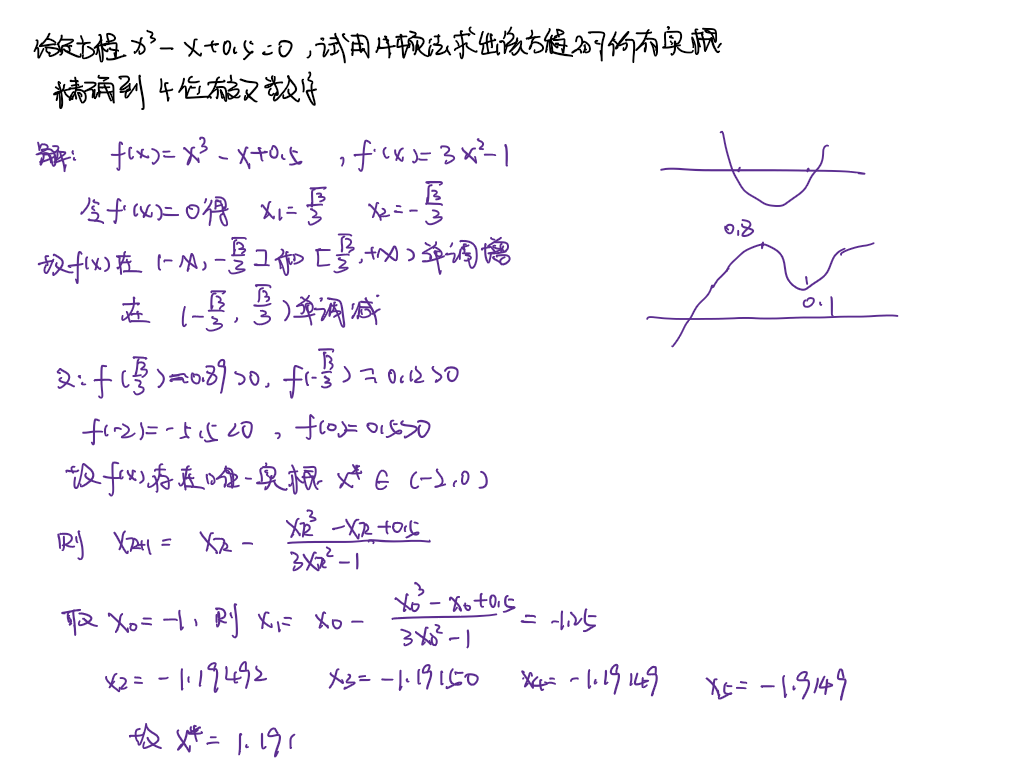 给定方程 x³ - x + 0.5 = 0 ,试用牛顿法求出该方程的所有实根
精确到 4 位有效数字
解: f(x) = x³ - x + 0.5 , f'(x) = 3x² - 1
令 f'(x) = 0 得 x₁ = √3/3 x₂ = -√3/3
故 f(x) 在 (-∞, -√3/3] 和 [√3/3, +∞) 单调增
在 (-√3/3, √3/3) 单调减
又: f(√3/3) = 0.89 > 0, f(-√3/3) = 0.12 > 0
f(-2) = -5.5 < 0 , f(0) = 0.5 > 0
故 f(x) 存在唯一实根 x* ∈ (-2, 0)
则 xₖ₊₁ = xₖ - (xₖ³ - xₖ + 0.5)/(3xₖ² - 1)
取 x₀ = -1, 则 x₁ = x₀ - (x₀³ - x₀ + 0.5)/(3x₀² - 1) = -1.25
x₂ = -1.19492 x₃ = -1.19150 x₄ = -1.19149 x₅ = -1.9149
故 x* = 1.191
0.8
0.1